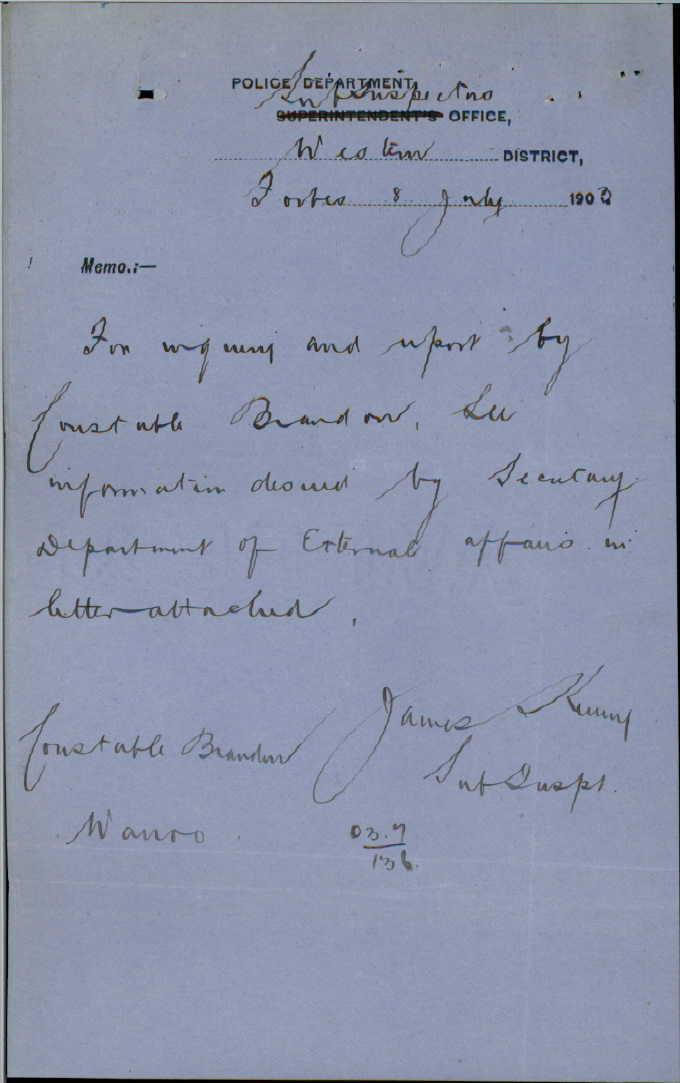 POLICE DEPARTMENT,
Sub Inspectors
SUPERINTENDENT'S OFFICE,
Western DISTRICT,
Forbes 8 July 1903
Memo.:—
For inquiry and report by
Constable Brandon, See
information desired by Secretary
Department of External affairs in
letter attached.
James Kenny
Constable Brandon
Sub Inspt.
Warroo.
03.7
136.